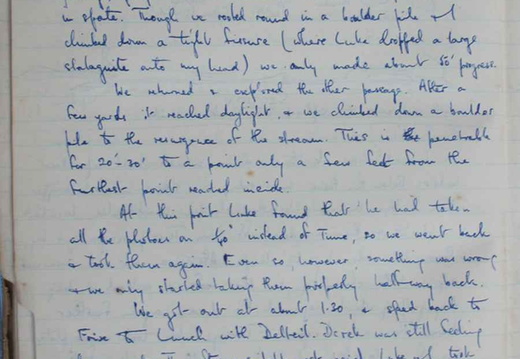 in spate. Though we rooted round in a boulder pile & I
climbed down a tight fissure (where Luke dropped a large
stalagmite onto my head) we only made about 50' progress.
We returned & explored the other passage. After a
few yards it reached daylight, & we climbed down a boulder
pile to the resurgence of the stream. This is penetrable
for 20'-30' to a point only a few feet from the
furthest point reached inside.
At this point Luke found that he had taken
all the photos on instead of Time, so we went back
& took them again. Even so, however, something was wrong
& we only started taking them properly halfway back.
We got out at about 1.30, & sped back to
Foix to lunch with Delteil. Derek was still feeling
Luke & I took